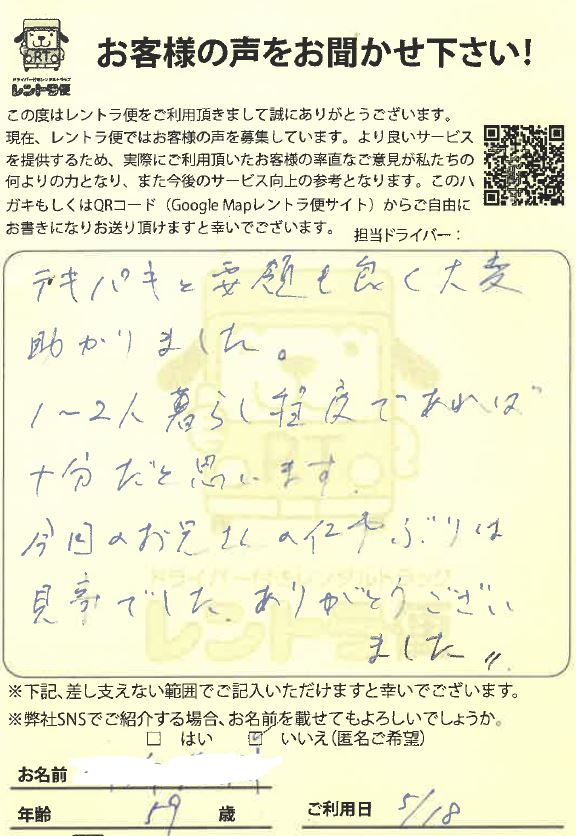 お客様の声をお聞かせ下さい!
RT
ドライバー付きレンタルトラック
レントラ便
この度はレントラ便をご利用頂きまして誠にありがとうございます。
現在、レントラ便ではお客様の声を募集しています。より良いサービス
を提供するため、実際にご利用頂いたお客様の率直なご意見が私たちの
何よりの力となり、また今後のサービス向上の参考となります。このハ
ガキもしくはQRコード（Google Mapレントラ便サイト）からご自由に
お書きになりお送り頂けますと幸いでございます。
担当ドライバー：
テキパキと要領も良く大変
助かりました。
1〜2人暮らし程度であれば
十分だと思います。
今回のお兄さんの仕事ぶりは
見事でした ありがとうござい
ました〃
※下記、差し支えない範囲でご記入いただけますと幸いでございます。
※弊社SNSでご紹介する場合、お名前を載せてもよろしいでしょうか。
□ はい ☑ いいえ（匿名ご希望）
お名前
年齢 59 歳 ご利用日 5/18